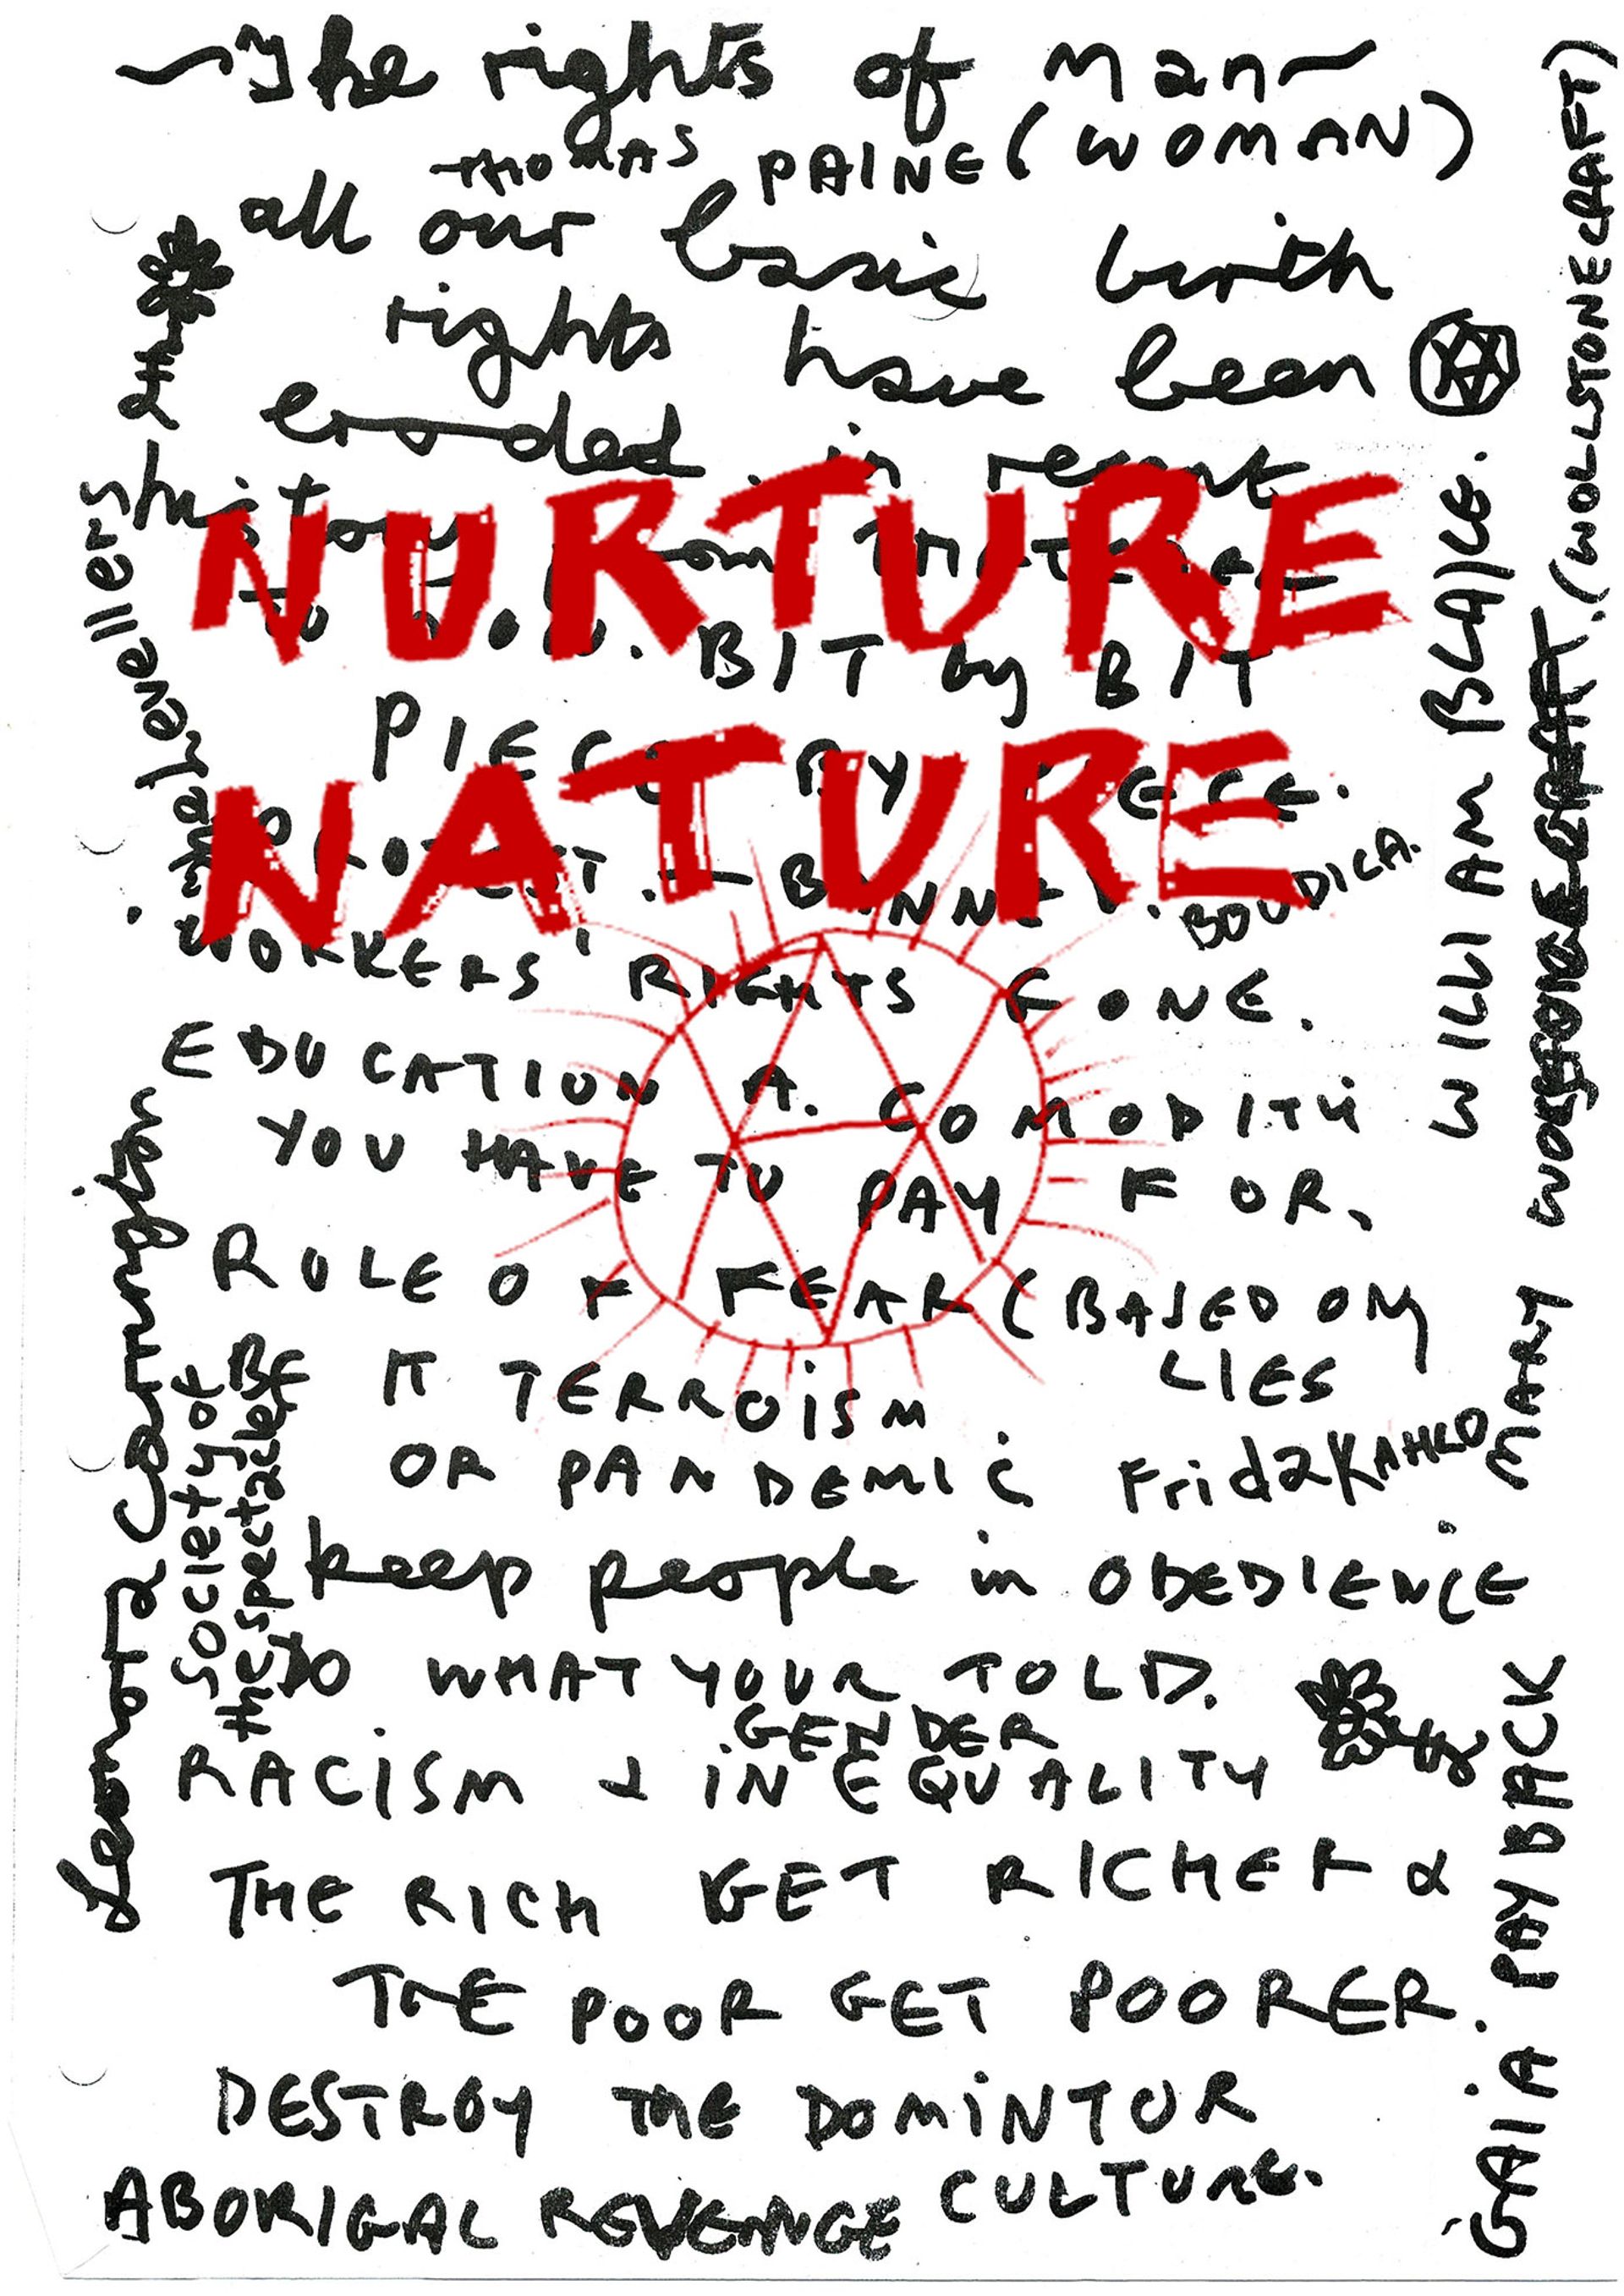 The rights of Man
(WOMAN)
THOMAS PAINE
all our basic birth
rights have been
eroded in recent
history from Thatcher
to now. BIT by BIT
PIECE BY PIECE.
PROTEST - BANNED.
BOUDICA.
WORKERS' RIGHTS GONE.
EDUCATION A. COMODITY
YOU HAVE TO PAY FOR,
RULE OF FEAR (BASED ON
LIES
IT TERROISM
OR PANDEMIC
Frida KAHLO
keep people in OBEDIENCE
DO WHAT YOUR TOLD.
GENDER
RACISM & INEQUALITY
THE RICH GET RICHER &
THE POOR GET POORER.
DESTROY THE DOMINTOR
CULTURE.
ABORIGAL REVENGE
NURTURE
NATURE
The Levellers
Leonora Carrington
society of
the spectacle
WILLIAM BLAKE.
MARY
(WOLLSTONECRAFT)
GAIA PAYBACK